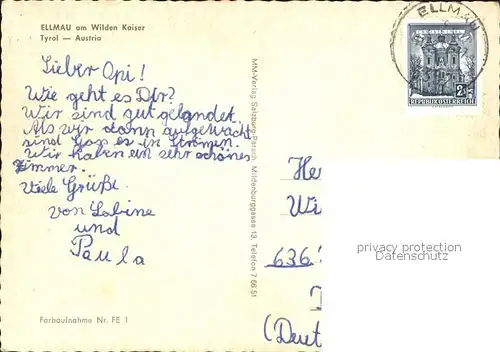 ELLMAU am Wilden Kaiser
Tyrol — Austria
ELLMAU
2S
REPUBLIK ÖSTERREICH
Lieber Opi!
Wie geht es Dir?
Wir sind gut gelandet.
Als wir dann aufgewacht
sind goss es in Strömen.
Wir haben ein sehr schönes
Zimmer.
Viele Grüße
von Sabine
und
Paula
MM-Verlag Salzburg-Parsch, Mildenburggasse 13, Telefon 7 66 51
He
Wi
636
(Deut
privacy protection
Datenschutz
Farbaufnahme Nr. FE 1